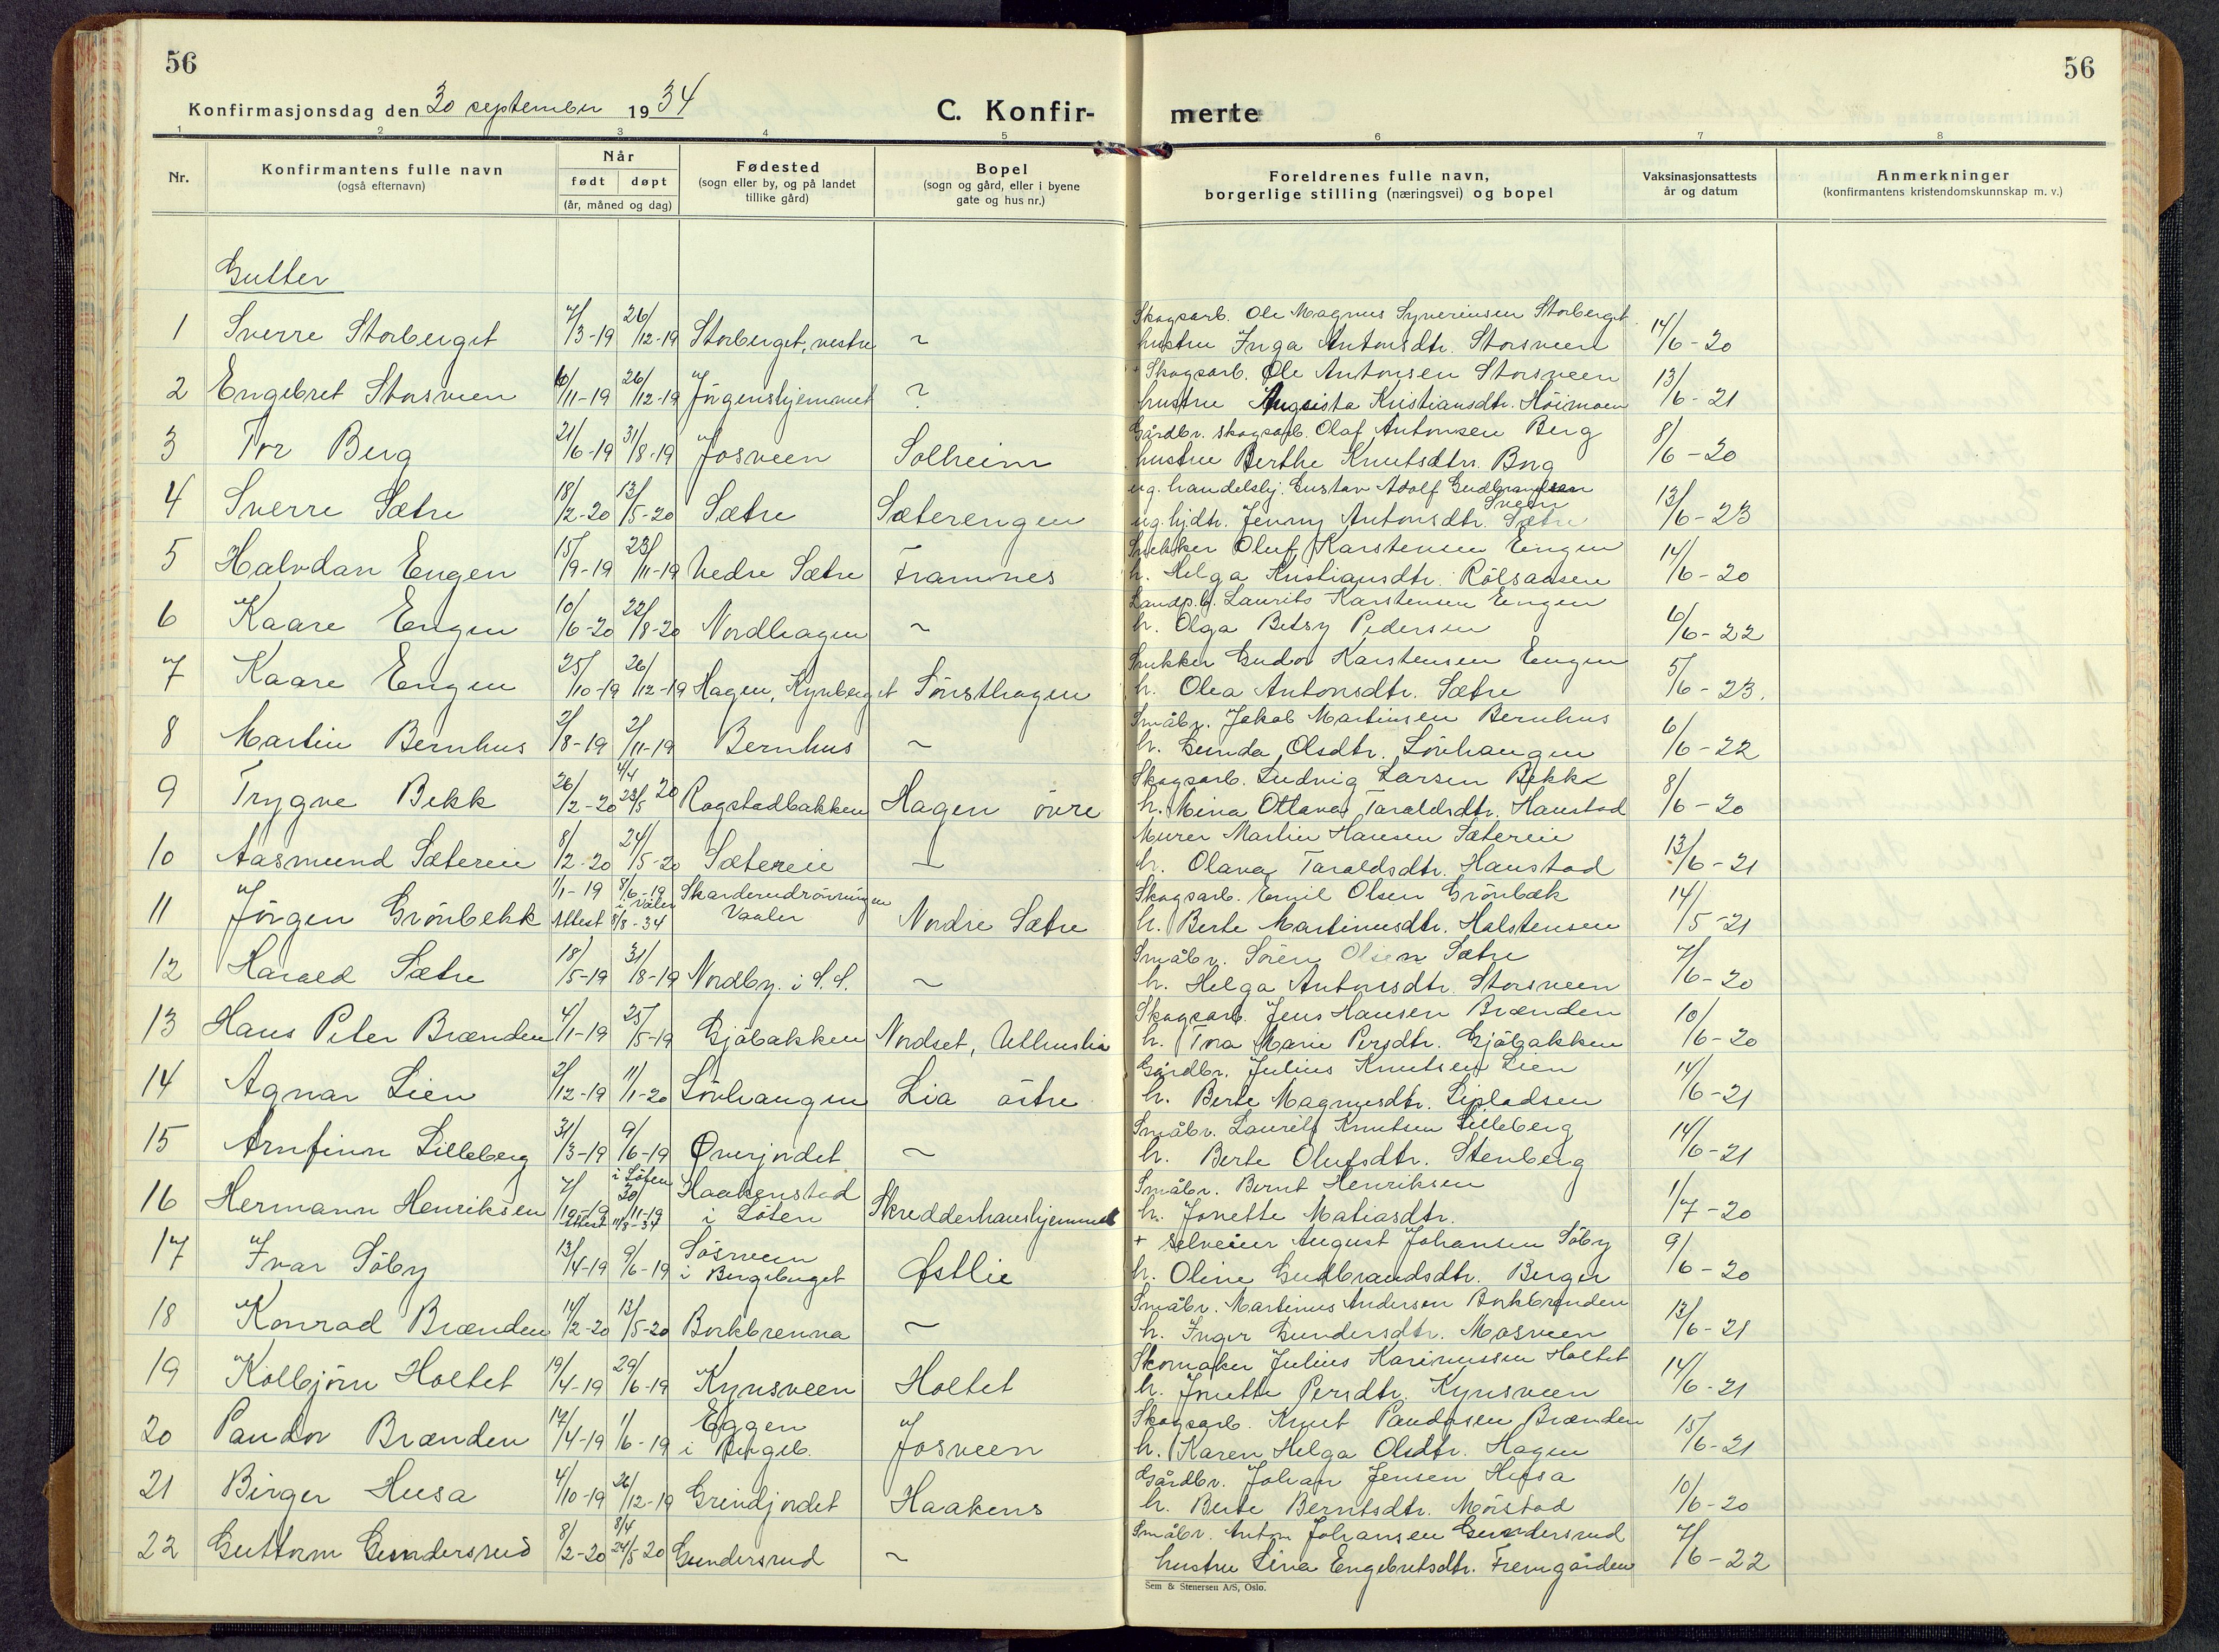 56
56
Konfirmasjonsdag den 30 september 1934
C. Konfir-
merte
1 2 3 4 5 6 7 8
Nr.
Konfirmantens fulle navn
(også efternavn)
Når
født døpt
(år, måned og dag)
Fødested
(sogn eller by, og på landet
tillike gård)
Bopel
(sogn og gård, eller i byene
gate og hus nr.)
Foreldrenes fulle navn,
borgerlige stilling (næringsvei) og bopel
Vaksinasjonsattests
år og datum
Anmerkninger
(konfirmantens kristendomskunnskap m. v.)
Gutter
1 Sverre Storberget 7/3-19 26/12-19 Storberget, vestre ~ Skogsarb. Ole Magnus Syverinsen Storberget
hustru Inga Antonsdtr. Storsveen 14/6-20
2 Engebret Storsveen 6/11-19 26/12-19 Jörgenshjemmet ? + Skogsarb. Ole Antonsen Storsveen
hustru Augusta Kristiansdtr. Höimoen 13/6-21
3 Tor Berg 21/6-19 31/8-19 Josveen Solheim Gårdbr. skogsarb. Olaf Antonsen Berg
hustru Berthe Knutsdtr. Berg 8/6-20
4 Sverre Sætre 18/2-20 13/5-20 Sætre Sæterengen ug. handelsbj. Gustav Adolf Gudbrandsen
Sveen
ug. hjdtr. Jenny Antonsdtr. Sætre 13/6-23
5 Halvdan Engen 15/9-19 23/11-19 Vedre Sætre Framnes Snekker Oluf Karstensen Engen
h. Helga Kristiansdtr. Rölsaasen 14/6-20
6 Kaare Engen 10/6-20 22/8-20 Nordhagen ~ Landp.b. Laurits Karstensen Engen
h. Olga Betsy Pedersen 6/6-22
7 Kaare Engen 25/10-19 26/12-19 Hagen, Kynberget Sönsthagen Snekker Gudor Karstensen Engen
h. Olea Antonsdtr. Sætre 5/6-23.
8 Martin Bernhus 2/8-19 2/11-19 Bernhus ~ Småbr. Jakob Martinsen Bernhus
h. Gunda Olsdtr. Lövhaugen 6/6-22
9 Trygve Bekk 26/2-20 4/4 23/5 20 Rogstadbakken Hagen övre Skogsarb. Ludvig Larsen Bekk
h. Mina Ottava Taraldsdtr. Haustad 8/6-20
10 Aasmund Sætereie 8/2-20 24/5-20 Sætereie — Murer Martin Hansen Sætereie
h. Olava Taraldsdtr. Haustad 13/6-21
11 Jörgen Grönbekk 1/1-19 8/6-19 i Våler Attest 8/8-34 Skarderudrövningen
Vaaler Nordre Sætre Skogsarb. Emil Olsen Grönbæk
h. Berte Martinusdtr. Halstensen 14/5-21
12 Harald Sætre 18/5-19 31/8-19 Nordby. i S.S. ~ Småbr. Sören Olsen Sætre
h. Helga Antonsdtr. Storsveen 7/6-20
13 Hans Peter Brænden 4/1-19 25/5-19 Gjöbakken Nordset, Ulfhuslia Skogsarb. Jens Hansen Brænden
h. Tora Marie Persdtr. Gjöbakken 10/6-20
14 Agnar Lien 2/12-19 11/1-20 Lövhaugen Lia östre Gårdbr. Julius Knutsen Lien
h. Berte Magnusdtr. 14/6-21
15 Arnfinn Lilleberg 31/3-19 9/6-19 Överjordet ~ Småbr. Laurits Knutsen Lilleberg
h. Berte Olufsdtr. Stenberg 14/6-21
16 Hermann Henriksen 7/10-19 i Löten 30/11-19 Attest 11/8-34 Haakenstad
i Löten Skredderhaushjemmet Småbr. Bernt Henriksen
h. Jonette Matiasdtr. 1/7-20
17 Ivar Söby 13/4-19 9/6-19 Sösveen
i Bergeberget Östlie + selveier August Johansen Söby
h. Oline Gudbrandsdtr. Berger 9/6-20
18 Konrad Brænden 14/2-20 13/5-20 Borkbrenna ~ Småbr. Martinus Andersen Borkbrænden
h. Inger Gundersdtr. Mosveen 13/6-21
19 Kolbjörn Holtet 19/4-19 29/6-19 Kynsveen Holtet Skomaker Julius Karinussen Holtet
h. Jonette Persdtr. Kynsveen 14/6-21
20 Pandor Brænden 17/4-19 1/6-19 Eggen
i Bergeb. Josveen Skogsarb. Knut Pandorsen Brænden
h. Karen Helga Olsdtr. Hagen 15/6-21
21 Birger Husa 4/10-19 26/12-19 Grindjordet Haakens Gårdbr. Johan Jensen Husa
h. Berte Berntsdtr. Mörstad 10/6-20
22 Guttorm Gundersrud 8/2-20 8/4 24/5-20 Gundersrud ~ Småbr. Anton Johansen Gundersrud
hustru Lina Engebretsdtr. Fremgården 7/6-22
Sem & Stenersen A/S, Oslo.